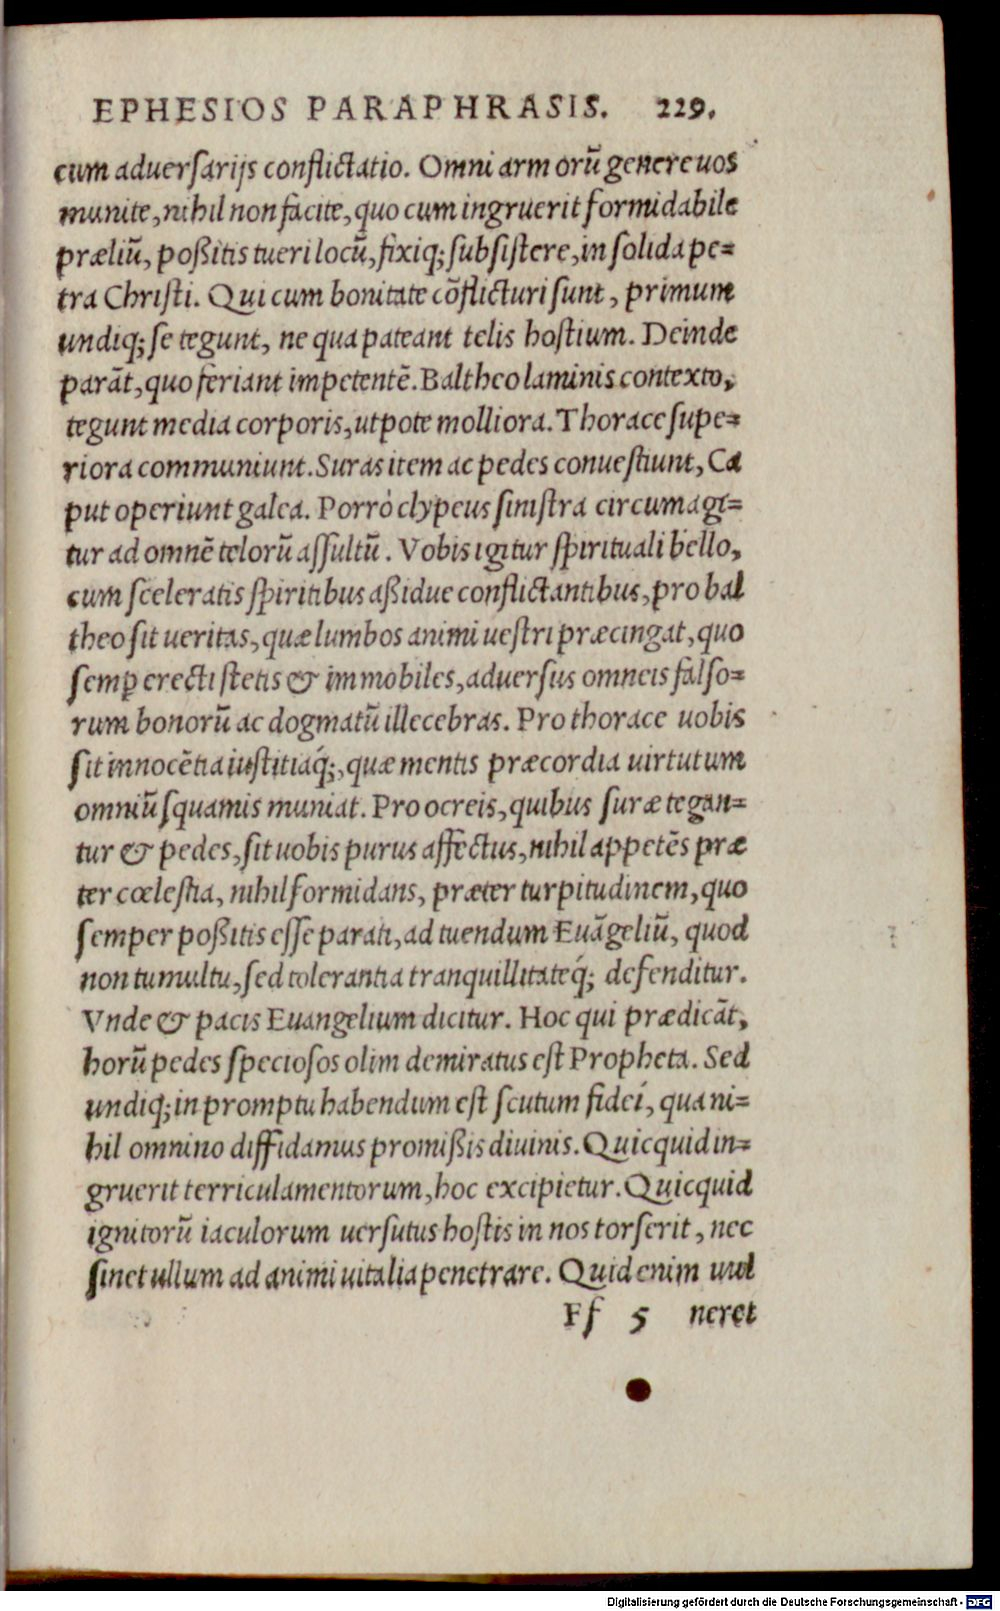 EPHESIOS PARAPHRASIS. 229.
cum aduersarijs conflictatio. Omni armorũ genere uos
munite, nihil non facite, quo cum ingruerit formidabile
præliũ, poßitis tueri locũ, fixiq; subsistere, in solida pe=
tra Christi. Qui cum bonitate cõflicturi sunt, primum
undiq; se tegunt, ne qua pateant telis hostium. Deinde
parãt, quo feriant impetentẽ. Baltheo laminis contexto,
tegunt media corporis, utpote molliora. Thorace supe=
riora communiunt. Suras item ac pedes conuestiunt, Ca
put operiunt galea. Porrò clypeus sinistra circumagi=
tur ad omnẽ telorũ assultũ. Vobis igitur spirituali bello,
cum sceleratis spiritibus aßidue conflictantibus, pro bal
theo sit ueritas, quæ lumbos animi uestri præcingat, quo
semp̱ erecti stetis & immobiles, aduersus omneis falso=
rum bonorũ ac dogmatũ illecebras. Pro thorace uobis
sit innocẽtia iustitiaq́;, quæ mentis præcordia uirtutum
omniũ squamis muniat. Pro ocreis, quibus suræ tegan=
tur & pedes, sit uobis purus affectus, nihil appetẽs præ
ter cœlestia, nihil formidans, præter turpitudinem, quo
semper poßitis esse parati, ad tuendum Euãgeliũ, quod
non tumultu, sed tolerantia tranquillitateq́; defenditur.
Vnde & pacis Euangelium dicitur. Hoc qui prædicãt,
horũ pedes speciosos olim demiratus est Propheta. Sed
undiq; in promptu habendum est scutum fidei, qua ni=
hil omnino diffidamus promißis diuinis. Quicquid in=
gruerit terriculamentorum, hoc excipietur. Quicquid
ignitorũ iaculorum uersutus hostis in nos torserit, nec
sinet ullum ad animi uitalia penetrare. Quid enim uul
Ff 5 neret
Digitalisierung gefördert durch die Deutsche Forschungsgemeinschaft - DFG